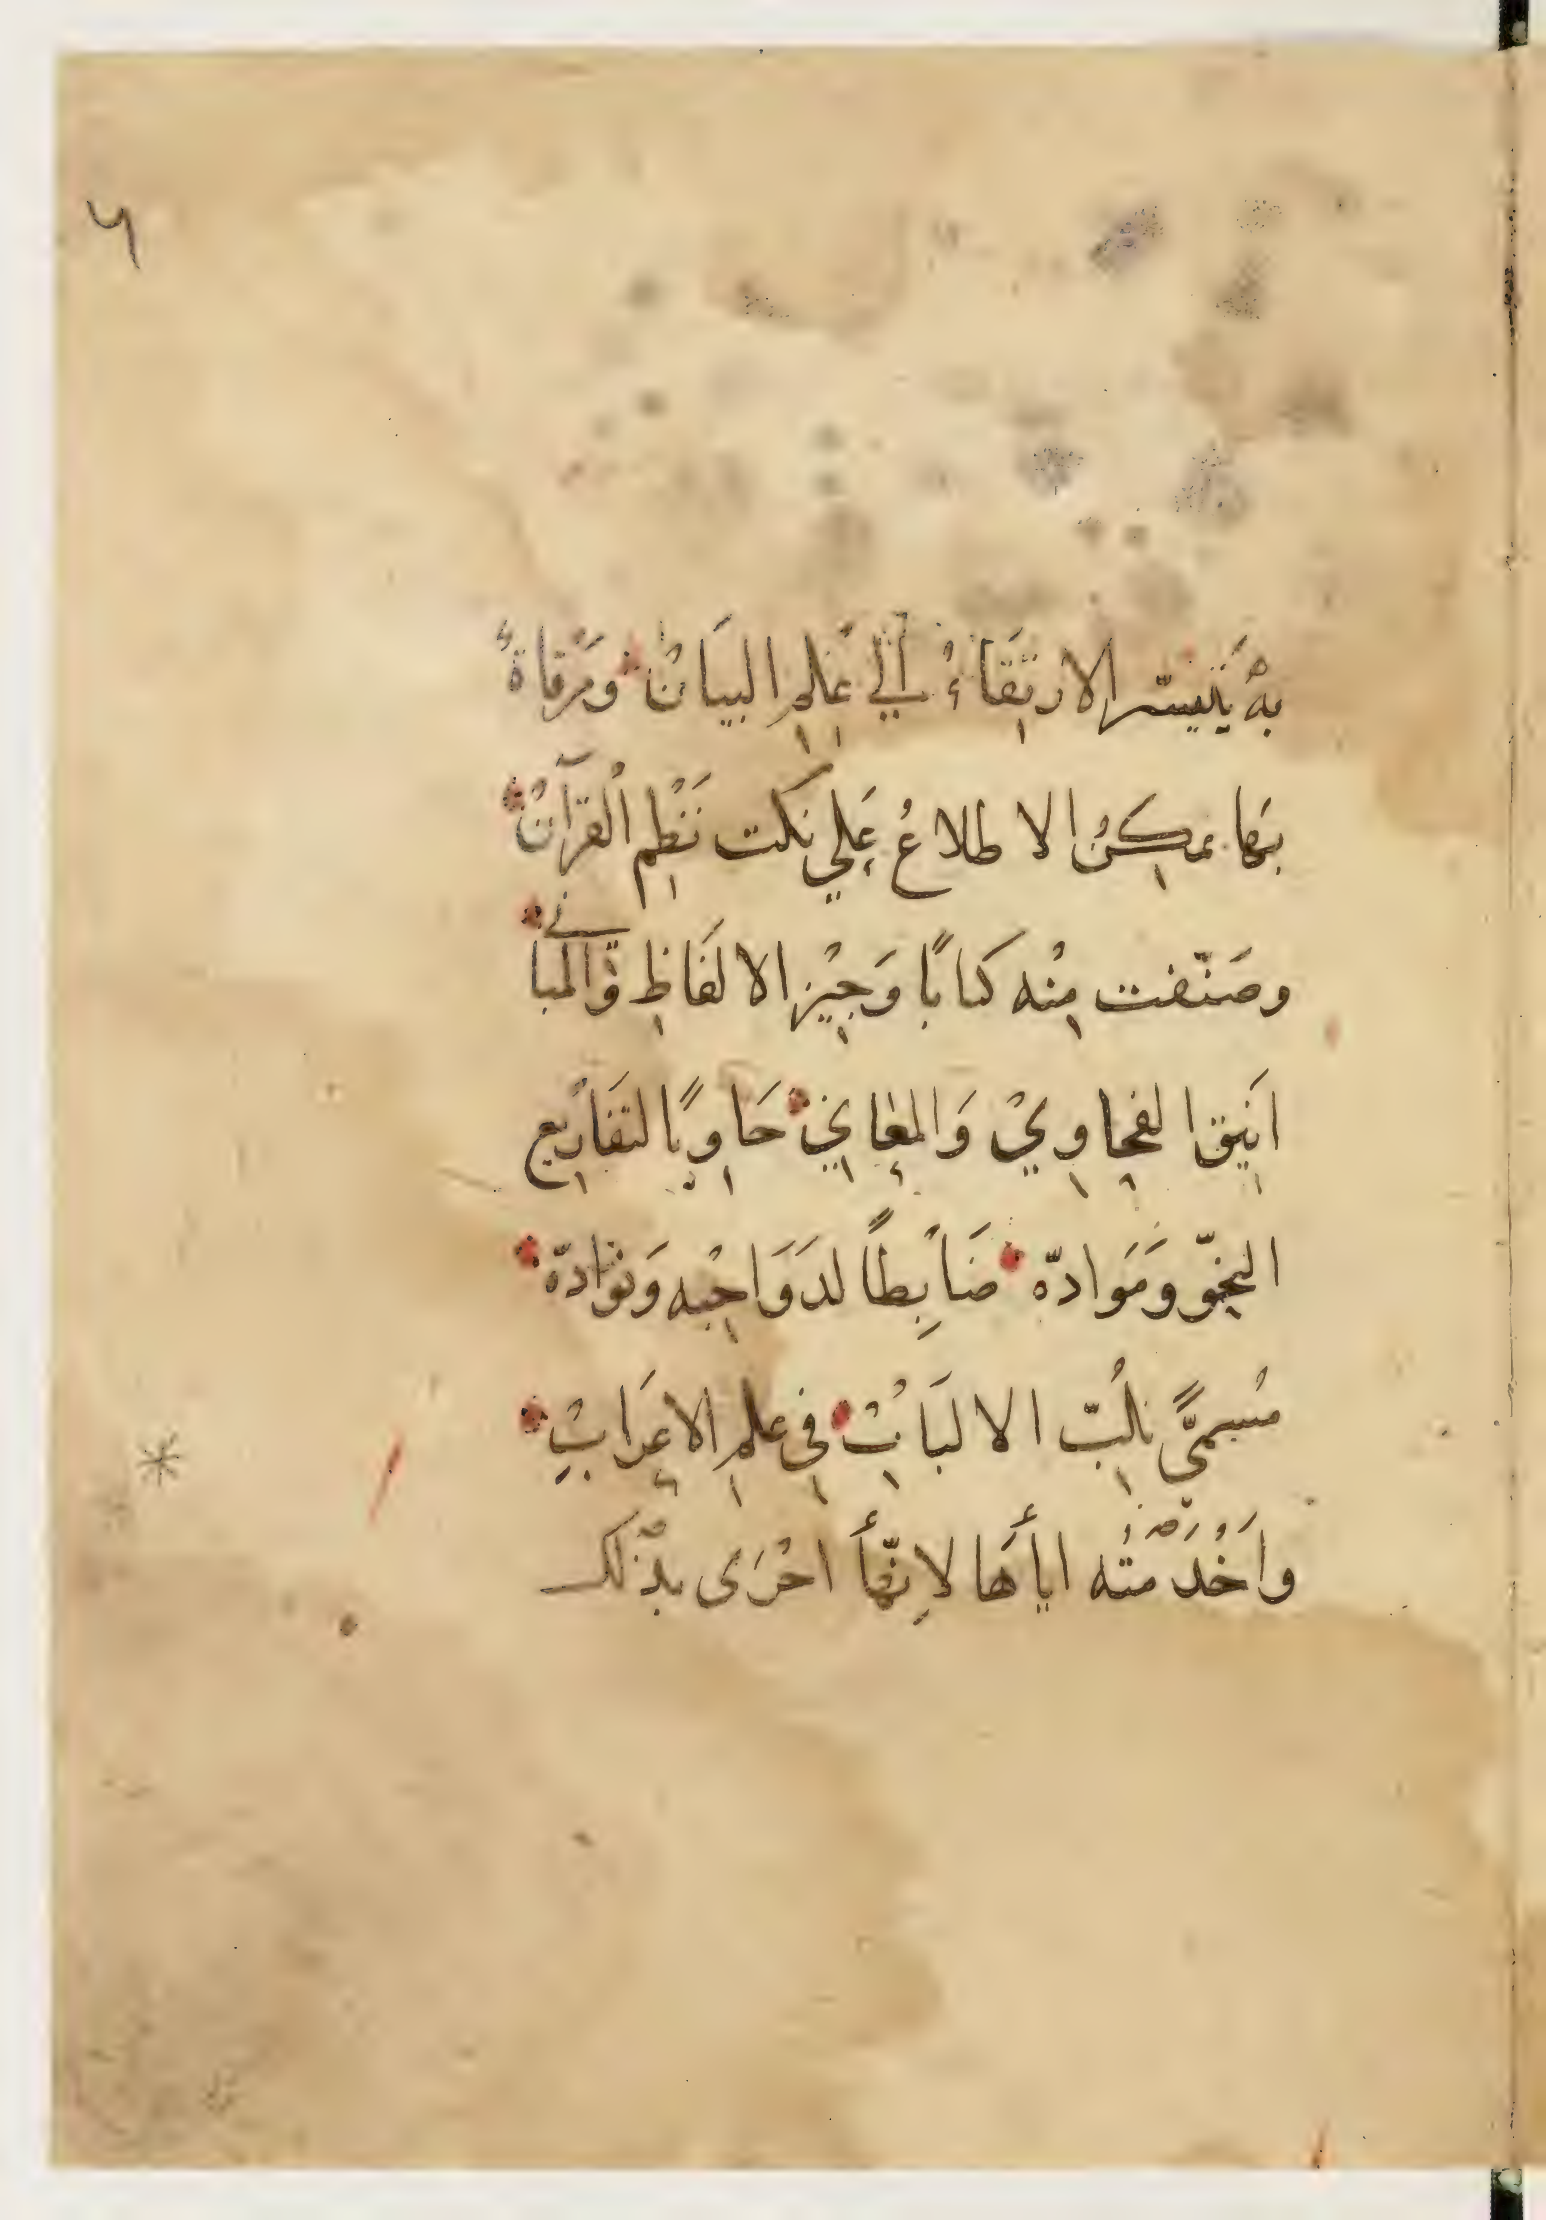 ٦
بِهْ يَتَيسّر الارتِقَاءُ الي عِلمِ البيَانْ ومَرْقاةٌ
بهَا يمكِنُ الاطلاعُ عَلي نكَت نَظْمِ الْقرْآنْ
وصَنّفت مِنْه كتابًا وَجِيْز الالفَاظِ وَالمباني
انِيق الفحاوِيْ وَالمعَانِي حَاوِيًا لتفَارِيع
النحّو ومَوَادّه ضَابِطاً لدَوَاجِنِه وَنوَادّه
مُسمّيً بلُبّ الالبَابْ فِي علمِ الاعرَابِ
واَخْدَمْتُه اياهَا لاِنّها احْرَى بذلك